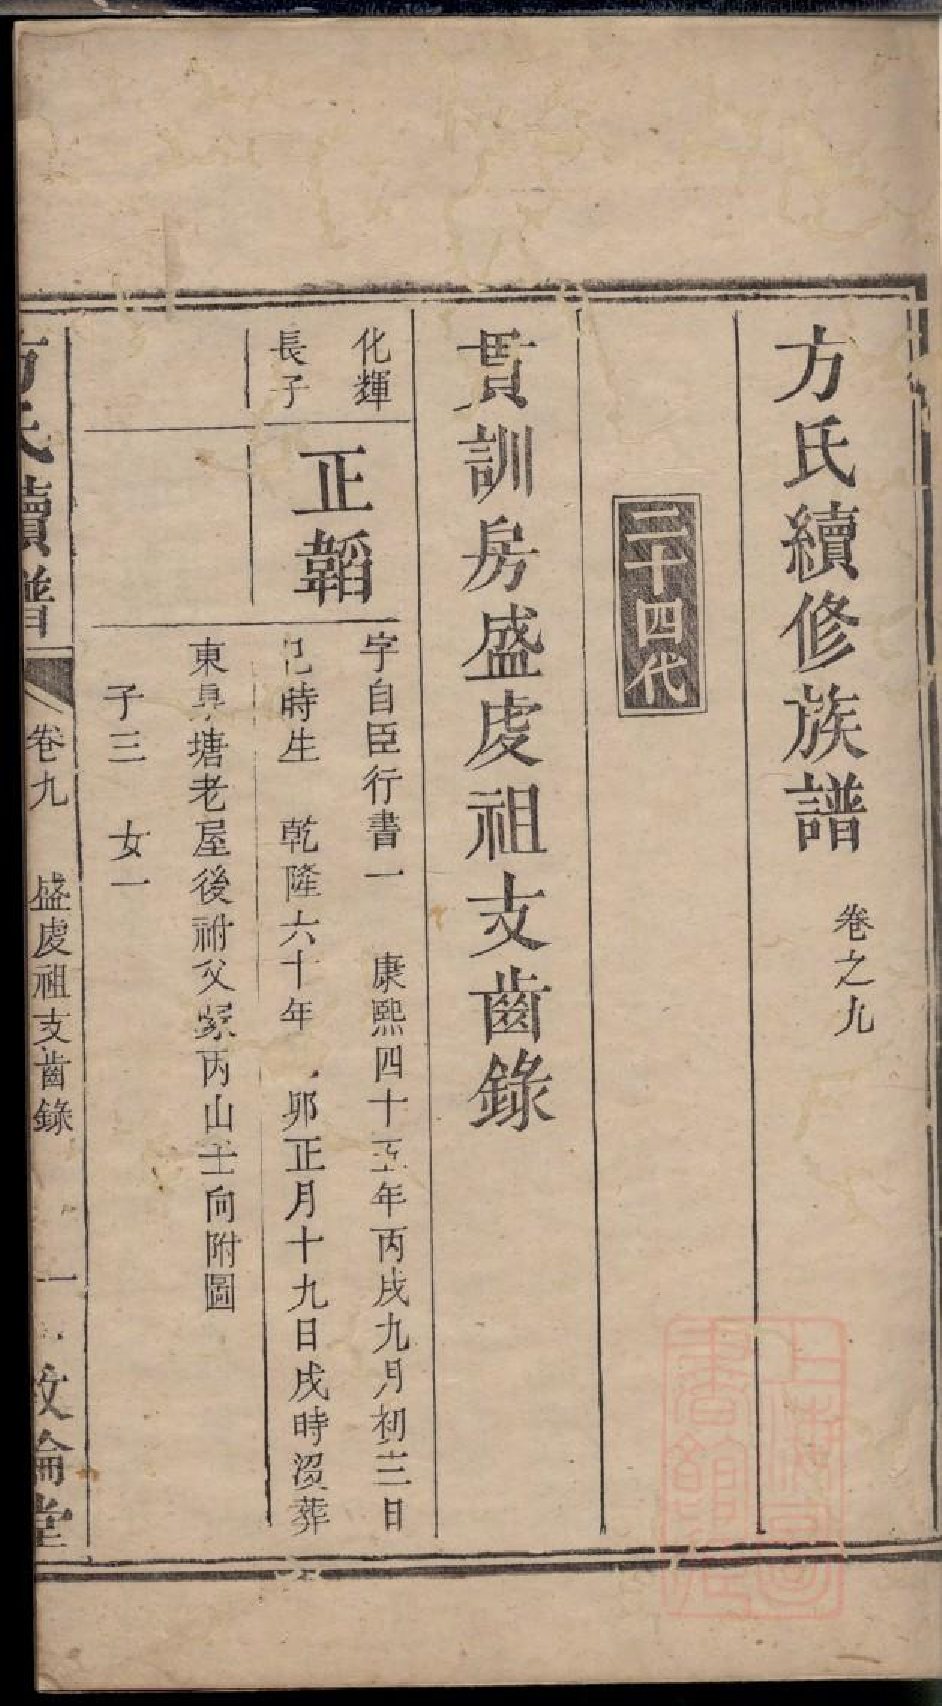 方氏續修族譜 卷之九
二十四代
貫訓房盛虔祖支齒錄
化輝
長子
正韜
字自臣行書一 康熙四十五年丙戌九月初三日
巳時生 乾隆六十年 卯正月十九日戌時沒葬
東臯塘老屋後祔父冢丙山壬向附圖
子三 女一
方氏續譜 卷九 盛虔祖支齒錄 一 敦倫堂
上海圖書館藏